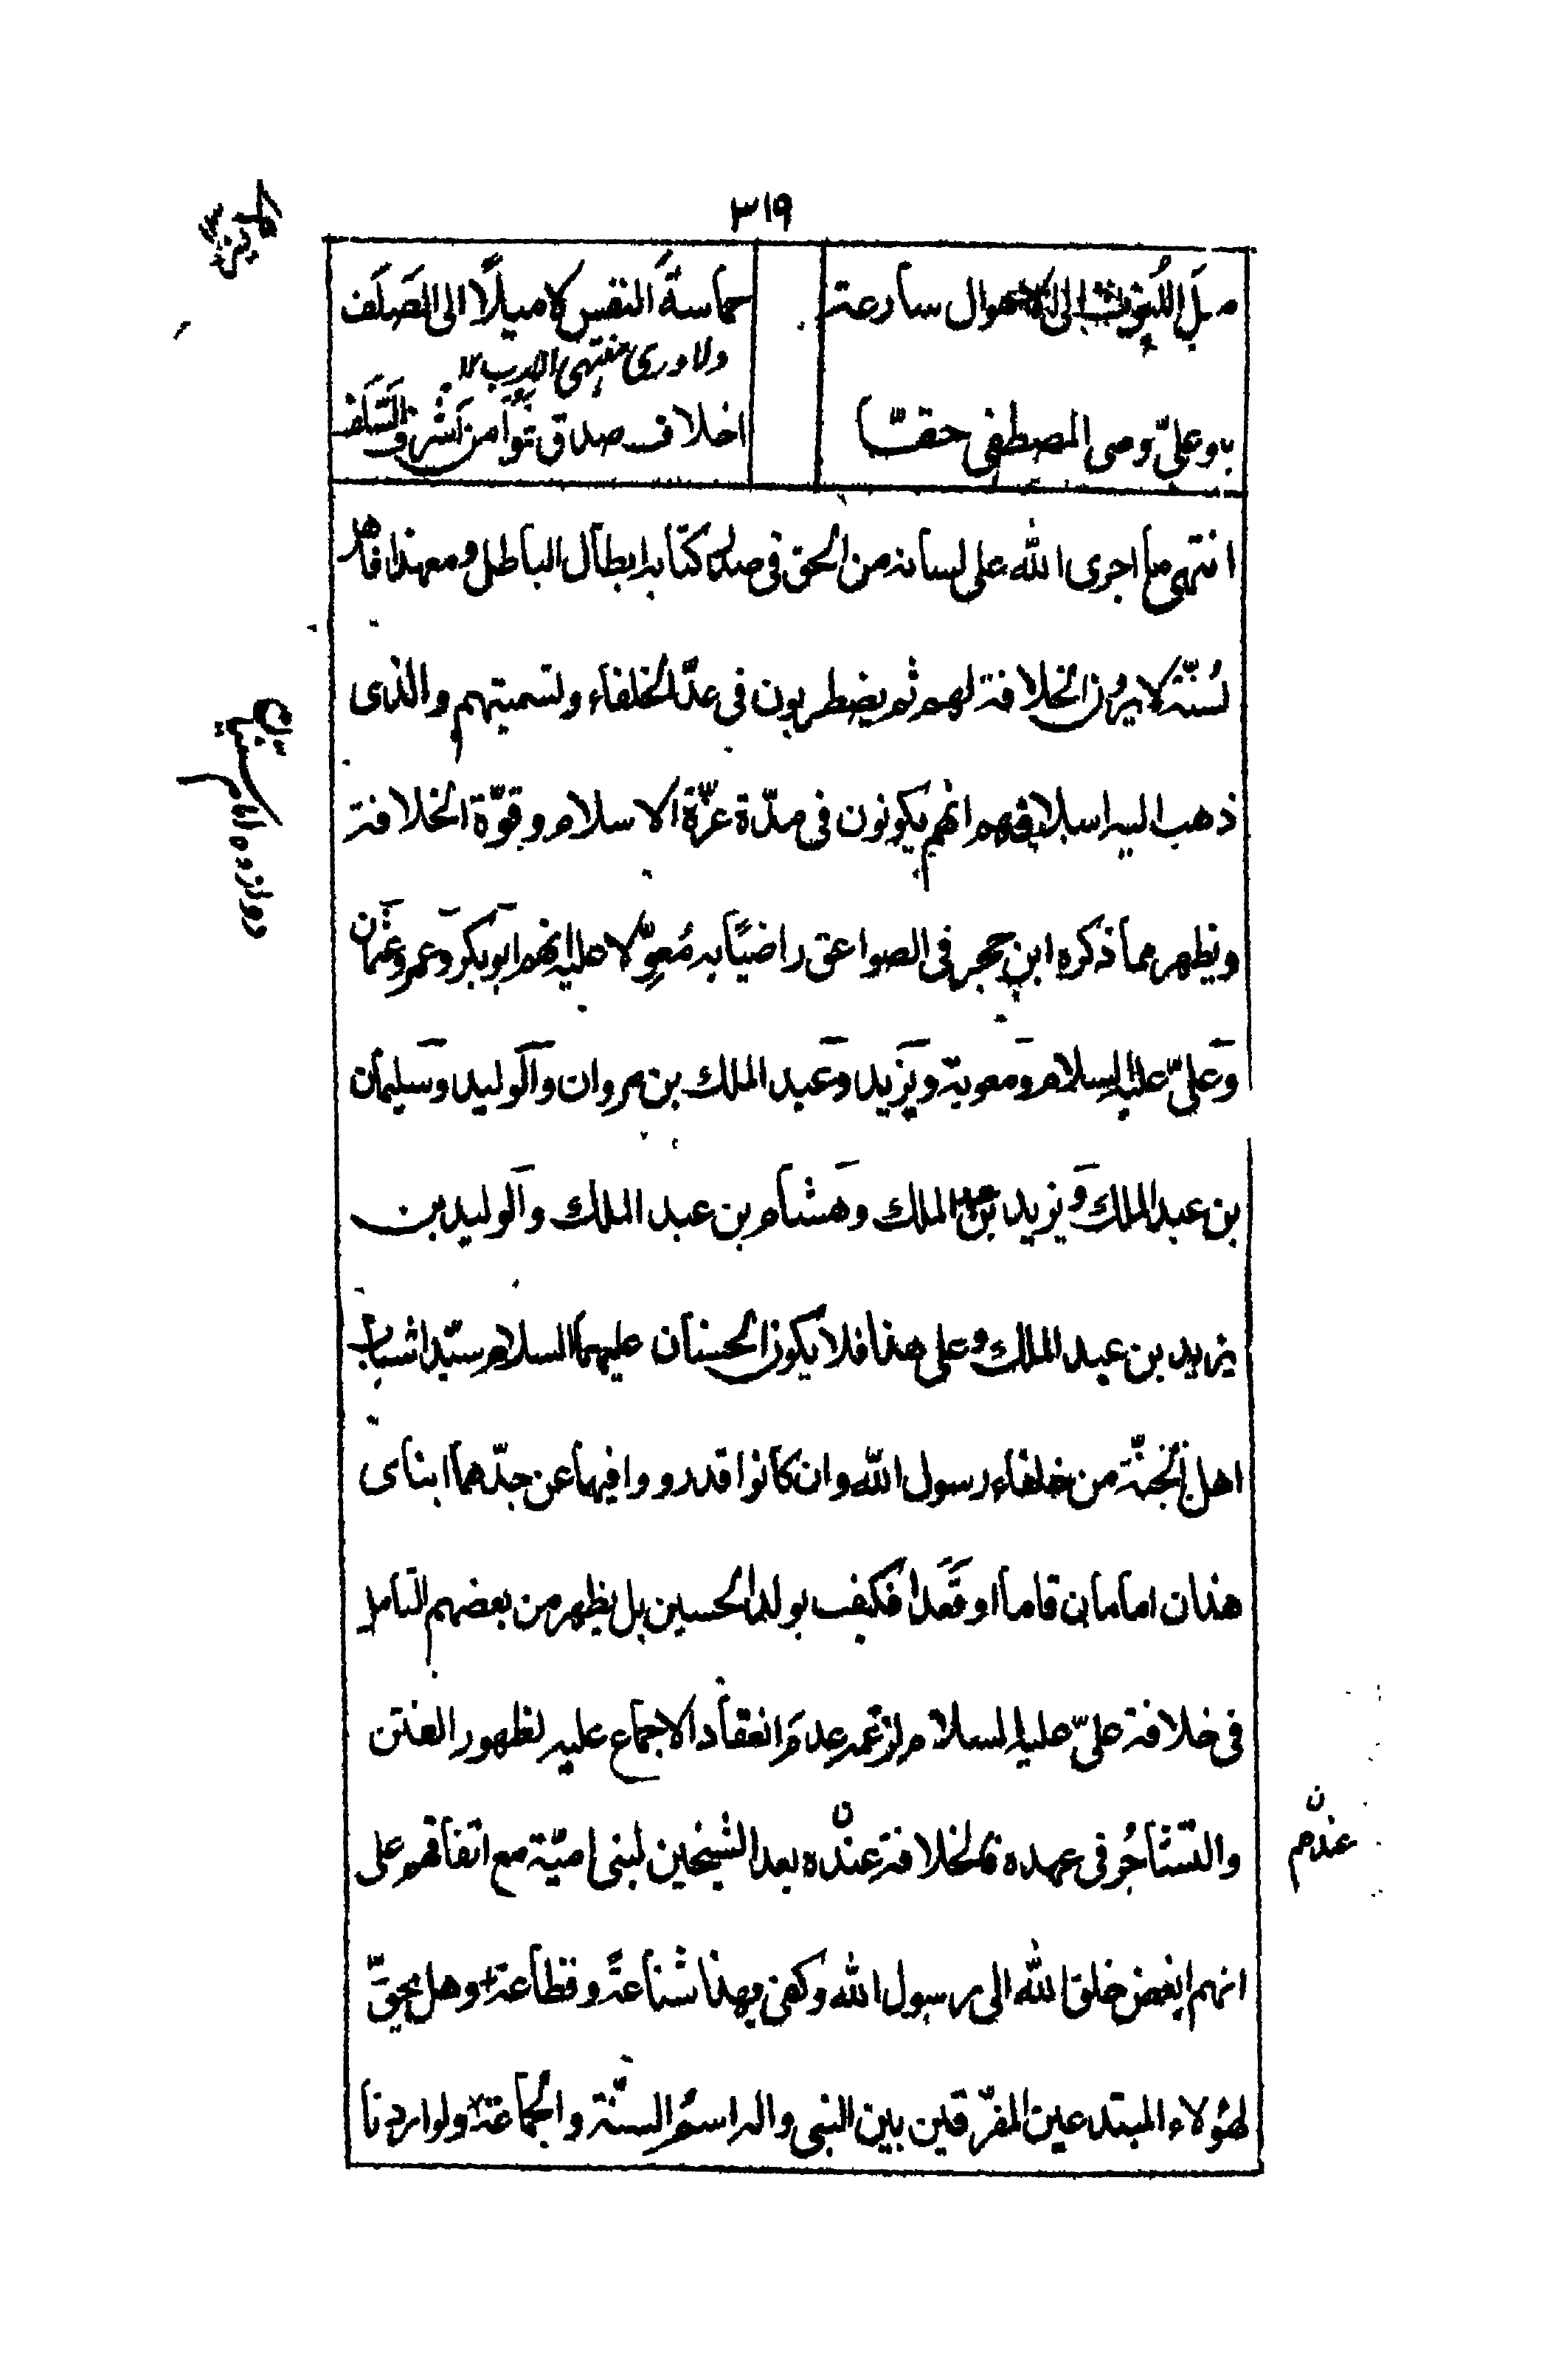 ٣١٩
مثل الليوث إلى الاهوال سارعة
حماسة النفس لا ميلًا الى الصَلَف
ولاوری منتهی الارب ١٢
بنو علىّ وصى المصطفى حقّا
اخلاف صدق نموا من اشرف السَلَف
انتهى ما اجرى الله على لسانه من الحق فى صدر كتابه ابطال الباطل ومع هذا فاهل
سُنّته لا يرون الخلافة لهم ثم يضطربون فى عدّ الخلفاء وتسميتهم والذى
ذهب اليه اسلافهم انهم يكونون فى مدّة عزّة الاسلام وقوّة الخلافة
ويظهر مما ذكره ابن حجر فى الصواعق راضيًا به مُعوّلا عليه انهم ابو بكر وعمر وعثمان
وعلىّ عليه السلام ومعوية ويزيد وعبد الملك بن مروان والوليد وسليمان
بن عبد الملك ويزيد بن عبد الملك وهشام بن عبد الملك والوليد بن
يزيد بن عبد الملك وعلى هذا فلا يكون الحسنان عليهما السلام سيّدا شباب
اهل الجنّة من خلفاء رسول الله وان كانوا قد رووا فيهما عن جدّهما ابناى
هذان امامان قاما او قَعَدا فكيف بولد الحسين بل يظهر من بعضهم التامل
فى خلافة علىّ عليه السلام لزعمه عدم انعقاد الاجماع عليه لظهور الفتن
والتشاجُر فى عهده فالخلافة عنده بعد الشيخين لبنى اميّة مع اتفاقهم على
عندهم ن
انهم ابغض خلق الله الى رسول الله وكفى بهذا شناعةً وفظاعة وهل يحقّ
لهؤلاء المبتدعين المفرّقين بين النبى واله اسمُ السنّة والجماعة ولو اردنا